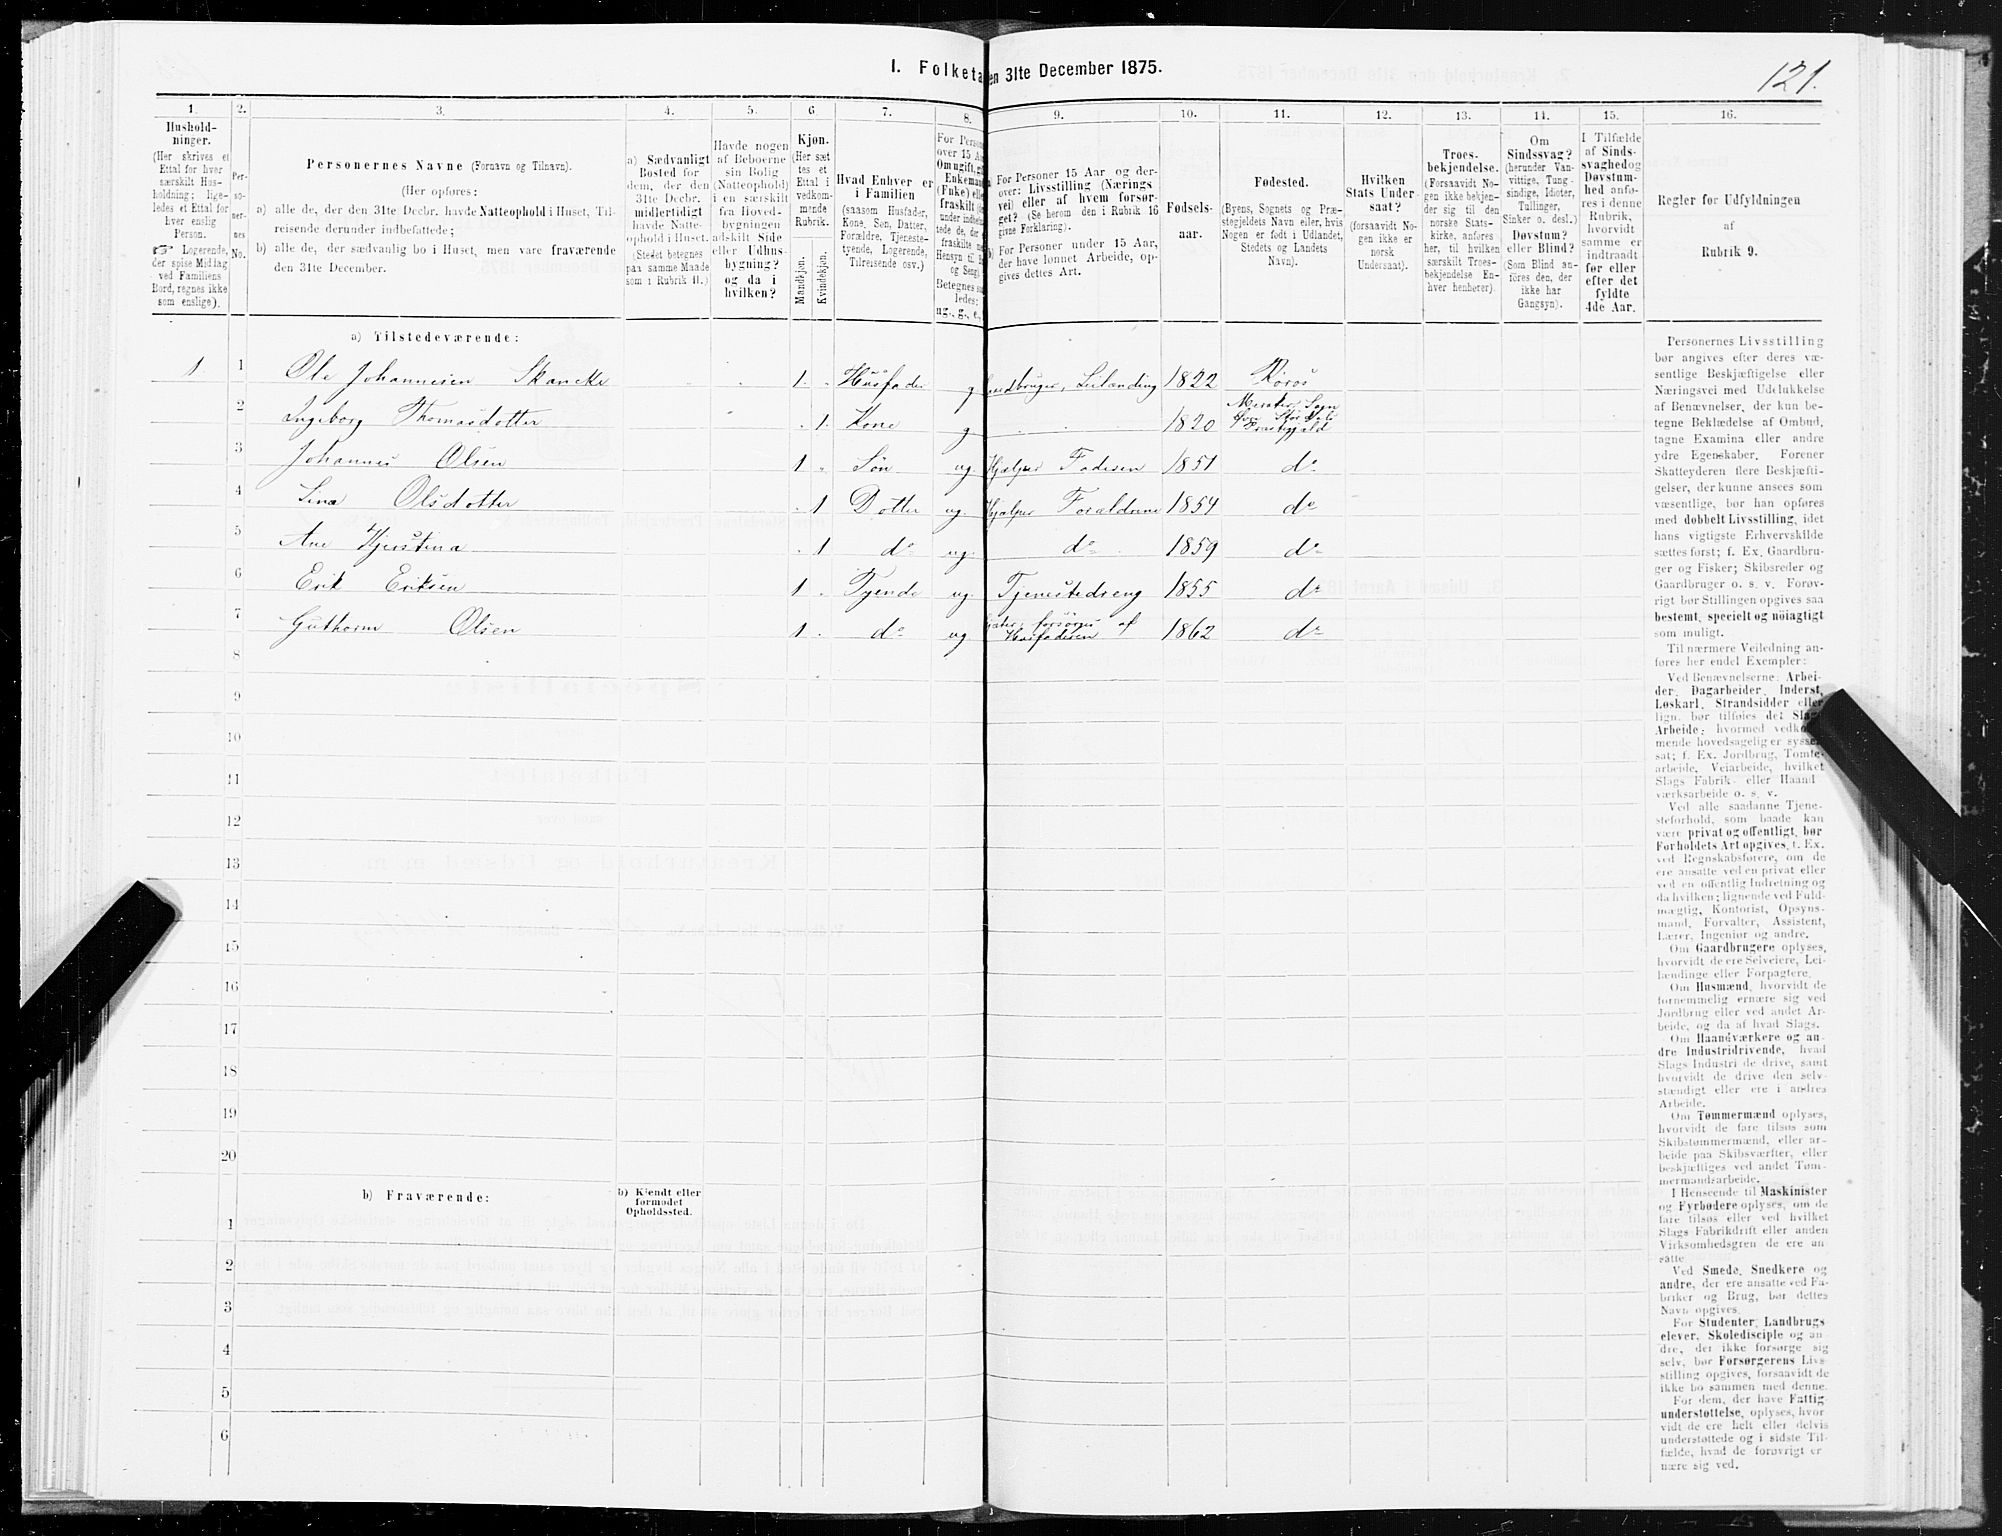 I. Folketa en 31te December 1875.
121.
1.
2.
3.
4.
5.
6.
7.
8.
9.
10.
11.
12.
13.
14.
15.
16.
Hushold-
ninger.
(Her skrives et
Ettal for hver
særskilt Hus-
holdning; lige-
ledes et Ettal for
hver enslig
Person.
☞ Logerende,
der spise Middag
ved Familiens
Bord, regnes ikke
som enslige).
Per-
so-
ner-
nes
No.
Personernes Navne (Fornavn og Tilnavn).
(Her opføres:
a) alle de, der den 31te Decbr. havde Natteophold i Huset, Til-
reisende derunder indbefattede;
b) alle de, der sædvanlig bo i Huset, men vare fraværende
den 31te December.
a) Sædvanligt
Bosted for
dem, der den
31te Decbr.
midlertidigt
havde Natte-
ophold i Huset.
(Stedet betegnes
paa samme Maade
som i Rubrik 11.)
Havde nogen
af Beboerne
sin Bolig
(Natteophold)
i en særskilt
fra Hoved-
bygningen
adskilt Side
eller Udhus-
bygning?
og da i
hvilken?
Kjøn.
(Her sæt
tes et
Ettal i
vedkom-
mende
Rubrik.
Mandkjøn.
Kvindekjøn.
Hvad Enhver er
i Familien
(saasom Husfader,
Kone, Søn, Datter,
Forældre, Tjeneste-
tyende, Logerende,
Tilreisende osv.)
For Perso
over 15 Aa
Om ugift, gi
Enkeman
(Enke) elle
fraskilt
under indbe
tede de, der
fraskilte
Hensyn til
og Seng).
Betegnes s
ledes:
ug., g., e.,
For Personer 15 Aar og der-
over: Livsstilling (Nærings
vei) eller af hvem forsør-
get? (Se herom den i Rubrik 16
givne Forklaring).
b) For Personer under 15 Aar,
der have lønnet Arbeide, op-
gives dettes Art.
Fødsels-
aar.
Fødested.
(Byens, Sognets og Præ-
stegjeldets Navn eller, hvis
Nogen er født i Udlandet,
Stedets og Landets
Navn).
Hvilken
Stats Under-
saat?
(forsaavidt No-
gen ikke er
norsk
Undersaat).
Troes-
bekjendelse.
(Forsaavidt No-
gen ikke bekjen-
der sig til den
norske Stats-
kirke, anføres
her, til hvilken
særskilt Troes-
bekjendelse En-
hver henhører).
Om
Sindssvag?
(herunder Van-
vittige, Tung-
sindige, Idioter,
Tullinger,
Sinker o. desl.)
Døvstum?
eller Blind?
(Som Blind an-
føres den, der
ikke har
Gangsyn).
I Tilfælde
af Sinds-
svaghed og
Døvstum-
hed anfø-
res i denne
Rubrik,
hvorvidt
samme er
indtraadt
før eller
efter det
fyldte
4de Aar.
Regler for Udfyldningen
af
Rubrik 9.
a) Tilstedeværende:
1 1 Ole Johannesen Skancke 1. Husfader g Leilænding 1822 Röros
2 Ingeborg Thomasdotter 1. Kone g 1820 Meraker Sogn
Præstegjeld
3 Johannes Olsen 1 Søn ug. Hjelper Faderen 1851 do
4 Lina Olsdotter 1 Dotter ug. Hjelper Foraldrene 1854 do
5 Ane Kjerstina 1 do ug. do 1859 do
6 Erik Eriksen 1 Tyende ug. Tjenestedreng 1855 do
7 Guthorm Olsen 1 do ug forsørges af
Husfaderen 1862 do
8
9
10
11
12
13
14
15
16
17
18
19
20
b) Fraværende:
b) Kjendt eller
formodet
Opholdssted.
1
2
3
4
5
6
Personernes Livsstilling
bør angives efter deres væ-
sentlige Beskjæftigelse eller
Næringsvei med Udelukkelse
af Benævnelser, der kun be-
tegne Beklædelse af Ombud,
tagne Examina eller andre
ydre Egenskaber. Forener
Skatteyderen flere Beskjæfti-
gelser, der kunne ansees som
væsentlige, bør han opføres
med dobbelt Livsstilling, idet
hans vigtigste Erhvervskilde
sættes først; f. Ex. Gaardbru-
ger og Fisker; Skibsreder og
Gaardbruger o. s. v. Forøv-
rigt bør Stillingen opgives saa
bestemt, specielt og nøiagtigt
som muligt.
Til nærmere Veiledning an-
føres her endel Exempler:
Ved Benævnelserne: Arbei-
der, Dagarbeider, Inderst,
Løskarl, Strandsidder eller
lign. bør tilføies det Slags
Arbeide, hvormed vedkom-
mende hovedsagelig er syssel-
sat; f. Ex. Jordbrug, Tomte-
arbeide, Veiarbeide, hvilket
Slags Fabrik- eller Haand-
værksarbeide o. s. v.
Ved alle saadanne Tjene-
steforhold, som baade kan
være privat og offentligt, bør
Forholdets Art opgives, f. Ex.
ved Regnskabsførere, om de
ere ansatte ved en privat eller
ved en offentlig Indretning og
da hvilken; lignende ved Fuld-
mægtig, Kontorist, Opsyns-
mand, Forvalter, Assistent,
Lærer, Ingeniør og andre.
Om Gaardbrugere oplyses,
hvorvidt de ere Selveiere, Lei-
lændinge eller Forpagtere.
Om Husmænd, hvorvidt de
fornemmelig ernære sig ved
Jordbrug eller ved andet Ar-
beide, og da af hvad Slags.
Om Haandværkere og an-
dre Industridrivende, hvad
Slags Industri de drive, samt
hvorvidt de drive den selv-
stændigt eller ere i andres
Arbeide.
Om Tømmermænd oplyses,
hvorvidt de fare tilsøs som
Skibstømmermænd, eller ar-
beide paa Skibsværfter, eller
beskjæftiges ved andet Tøm-
mermandsarbeide.
I Henseende til Maskinister
og Fyrbødere oplyses, om de
fare tilsøs eller ved hvilket
Slags Fabrikdrift eller anden
Virksomhedsgren de ere an-
satte
Ved Smede, Snedkere og
andre, der ere ansatte ved Fa-
briker og Brug, bør dettes
Navn opgives.
For Studenter, Landbrugs
elever, Skoledisciple og an-
dre, der ikke forsørge sig
selv, bør Forsørgerens Livs-
stilling opgives, forsaavidt de
ikke bo sammen med denne.
For dem, der have Fattig-
understøttelse, oplyses, hvor-
vidt de ere helt eller delvis
understøttede og i sidste Til-
fælde, hvad de forøvrigt er
nære sig ved.